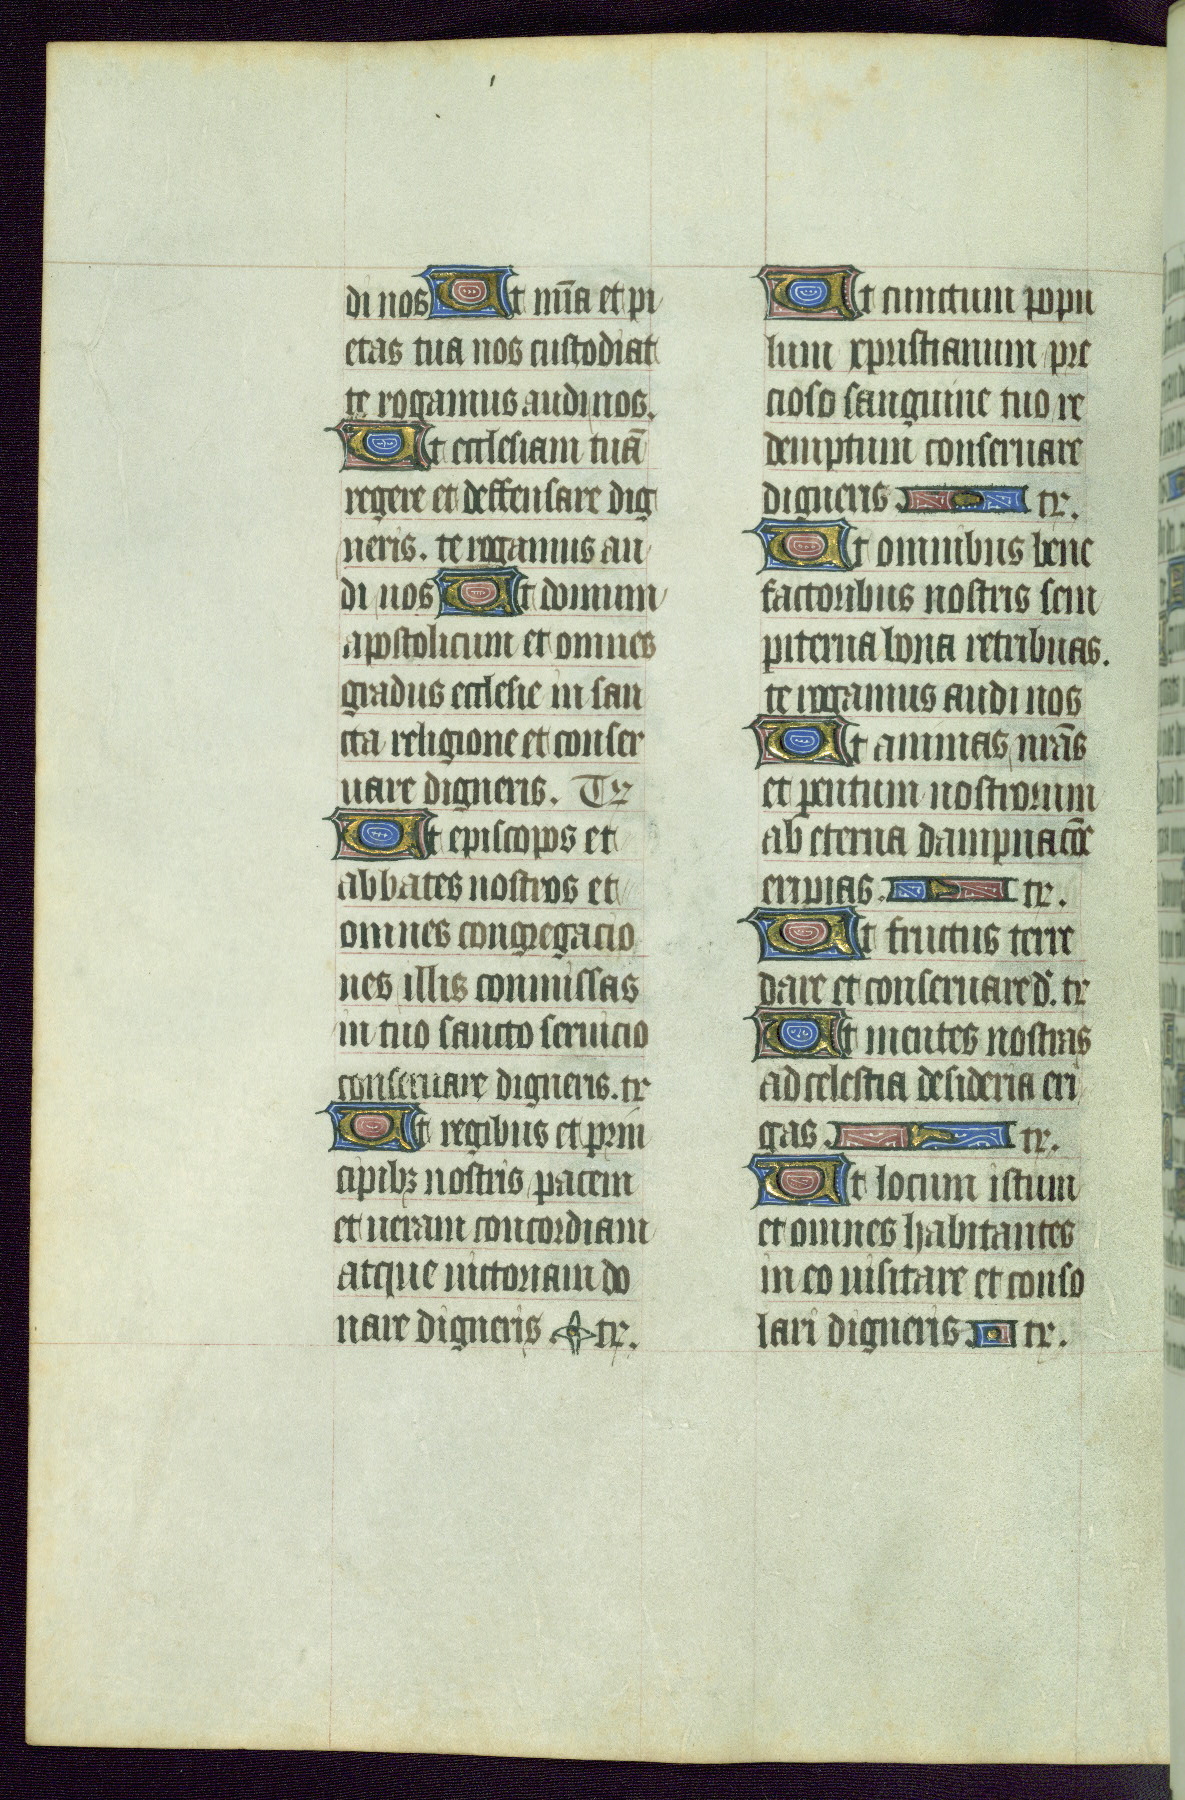 di nos Ut mīa et pi
etas tua nos custodiat
te rogamus audi nos.
Ut ecclesiam tuā
regere et deffensare dig
neris. te rogamus au
di nos Ut domum
apostolicum et omnes
gradus ecclesie in san
cta religione et conser
uare digneris. Tr
Ut episcopos et
abbates nostros et
omnes congregacio
nes illis commissas
in tuo sancto seruicio
conseruare digneris. tr
Ut regibus et prin
cipibꝫ nostris pacem
et ueram concordiam
atque uictoriam do
nare digneris. tr.
Ut cunctum popu
lum xpristianum pre
cioso sanguine tuo re
demptum conseruare
digneris. tr.
Ut omnibus bene
factoribus nostris sem
piterna bona retribuas.
te rogamus audi nos
Ut animas nrās
et parentum nostrorum
ab eterna dampnacōe
eripias. tr.
Ut fructus terre
dare et conseruare d̾. tr
Ut mentes nostras
ad celestia desideria eri
gas. tr.
Ut locum istum
et omnes habitantes
in eo uisitare et conso
lari digneris. tr.